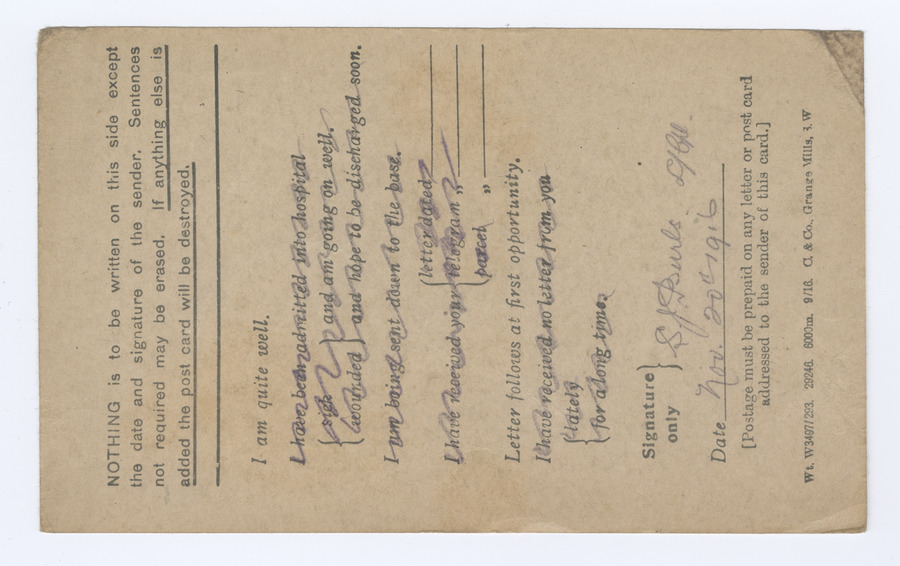 NOTHING is to be written on this side except
the date and signature of the sender. Sentences
not required may be erased. If anything else is
added the post card will be destroyed.
I am quite well.
I have been admitted into hospital
sick and am going on well.
wounded and hope to be discharged soon.
I am being sent down to the base.
letter dated
I have received your telegram „
parcel „
Letter follows at first opportunity.
I have received no letter from you
lately
for a long time.
Signature
only
S J Burls
Date Nov. 20th 1916
[Postage must be prepaid on any letter or post card
addressed to the sender of this card.]
Wt. W3497/293. 29246. 6000m. 9/16. C. & Co., Grange Mills, S.W